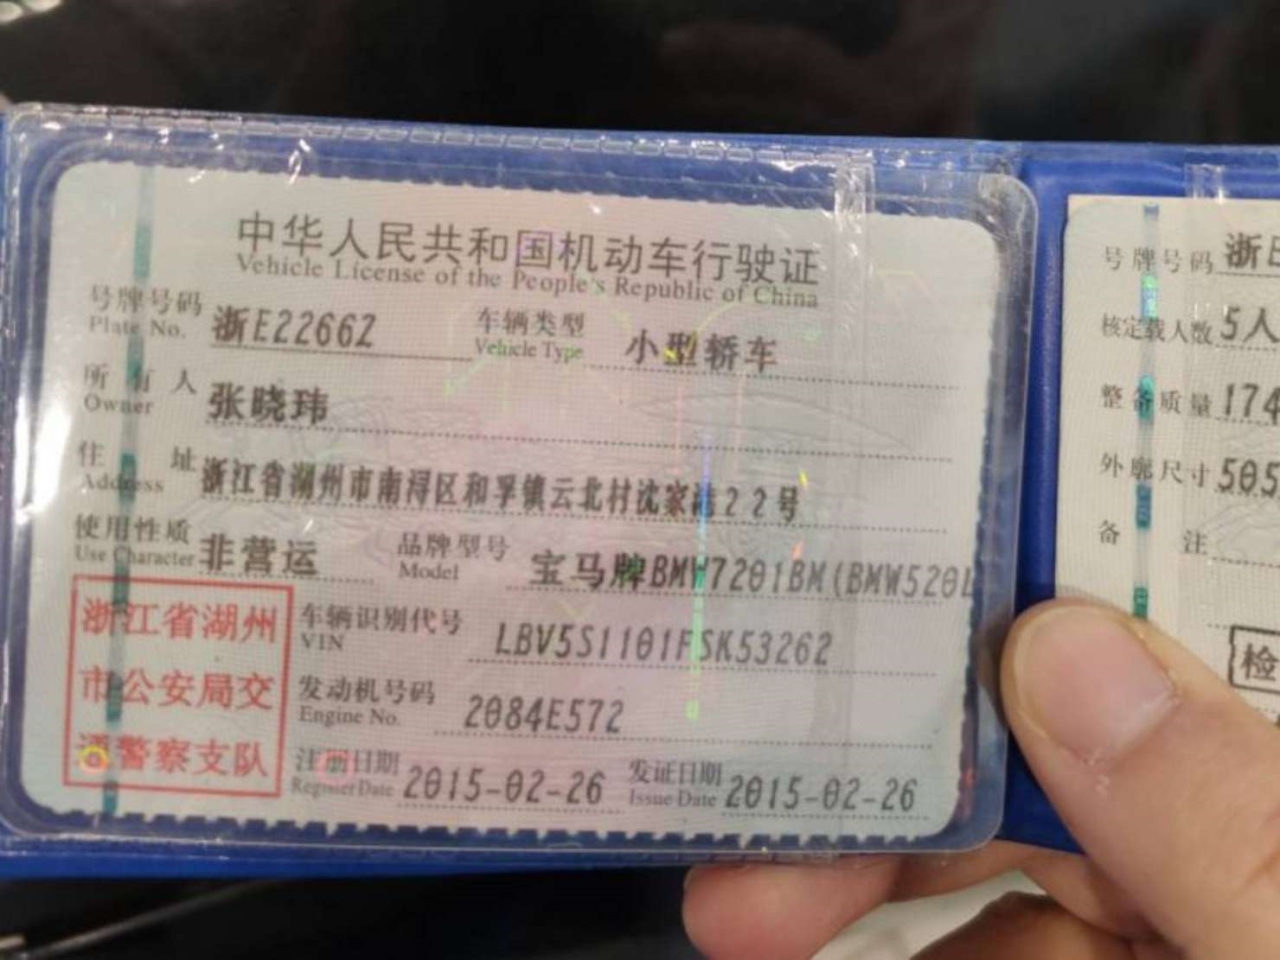 中华人民共和国机动车行驶证
Vehicle License of the People's Republic of China
号牌号码 浙E2266Z 车辆类型 小型轿车
Plate No. Vehicle Type
所有人 张晓玮
Owner
住址 浙江省湖州市南浔区和孚镇云北村沈家港22号
Address
使用性质 非营运 品牌型号 宝马牌BMW7201BM(BMW520L
Use Character Model
浙江省湖州
市公安局交
通警察支队
车辆识别代号 LBV5S1101FSK53262
VIN
发动机号码 2084E572
Engine No.
注册日期 2015-02-26 发证日期 2015-02-26
Register Date Issue Date
号牌号码 浙E
核定载人数 5人
整备质量 174
外廓尺寸 505
备注
检